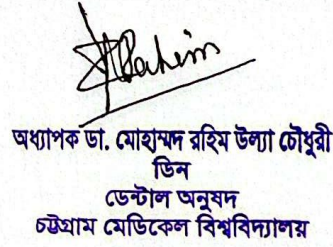 অধ্যাপক ডা. মোহাম্মদ রহিম উল্যা চৌধুরী
ডিন
ডেন্টাল অনুষদ
চট্টগ্রাম মেডিকেল বিশ্ববিদ্যালয়